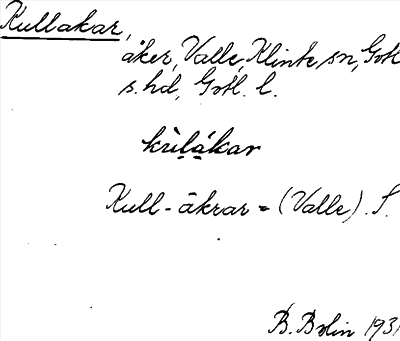 Kullakar,
åker, Valle, Klinte sn, Gotl
s. hd, Gotl. l.
kùlákar
Kull-åkrar = (Valle). S.
B. Bolin 1931